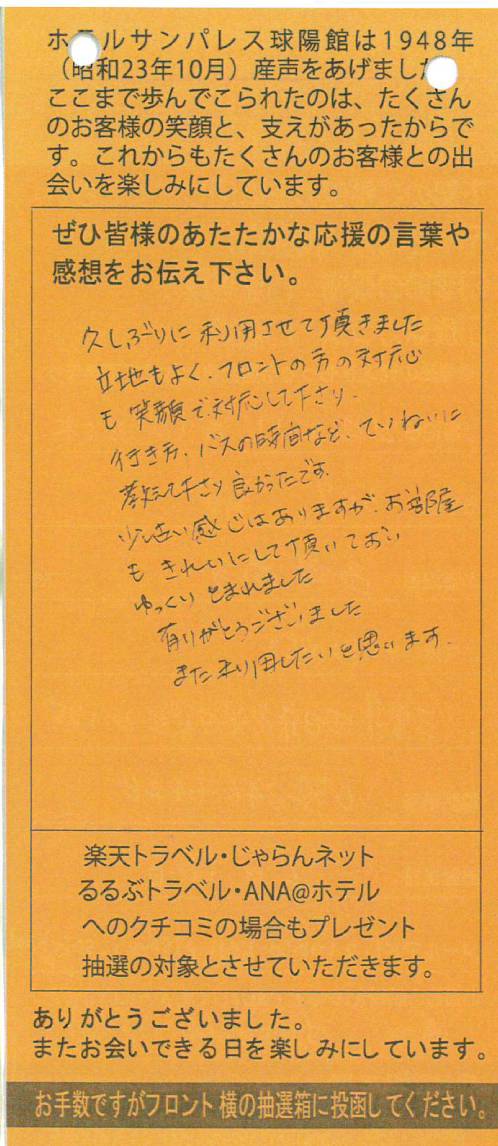 ホテルサンパレス球陽館は1948年
（昭和23年10月）産声をあげました。
ここまで歩んでこられたのは、たくさん
のお客様の笑顔と、支えがあったからで
す。これからもたくさんのお客様との出
会いを楽しみにしています。
ぜひ皆様のあたたかな応援の言葉や
感想をお伝え下さい。
久しぶりに利用させて頂きました
立地もよく、フロントの方の対応
も笑顔で対応して下さり、
行き方、バスの時間など、ていねいに
教えて下さり良かったです。
少し古い感じはありますが、お部屋
もきれいにして頂いており
ゆっくりとまれました
有りがとうございました
また利用したいと思います。
楽天トラベル・じゃらんネット
るるぶトラベル・ANA@ホテル
へのクチコミの場合もプレゼント
抽選の対象とさせていただきます。
ありがとうございました。
またお会いできる日を楽しみにしています。
お手数ですがフロント横の抽選箱に投函してください。